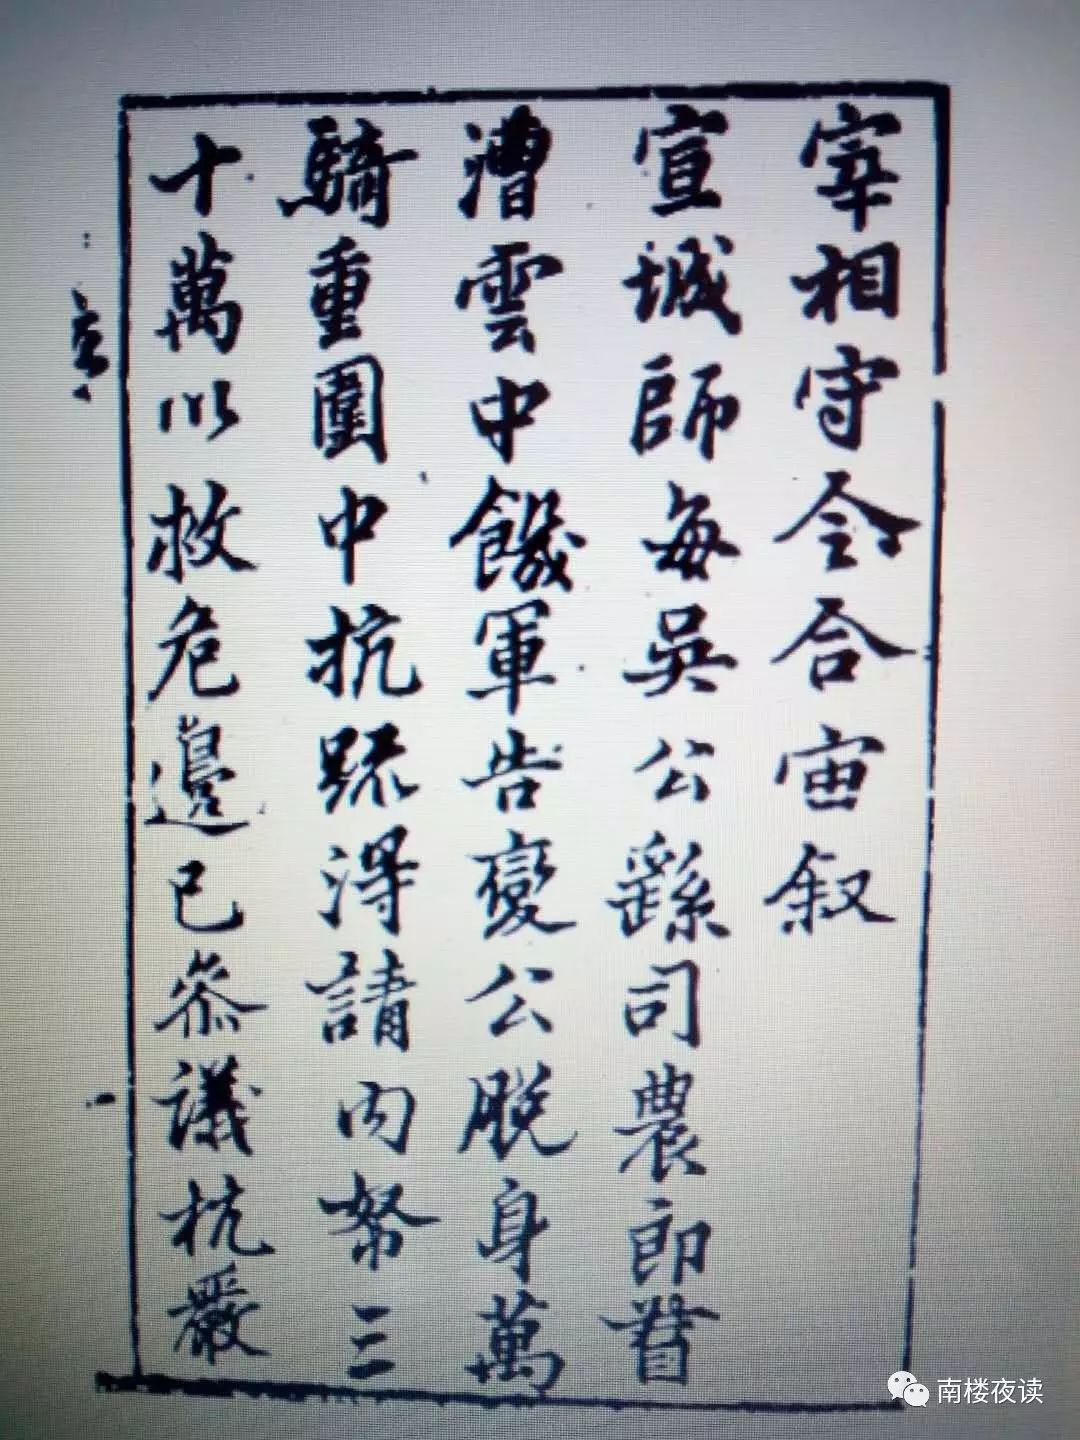 宰相守令合宙叙
宣城師每吳公繇司農郎督
漕雲中饑軍告變公脫身萬
騎重圍中抗疏得請內帑三
十萬以救危邊已叅議杭嚴
南楼夜读